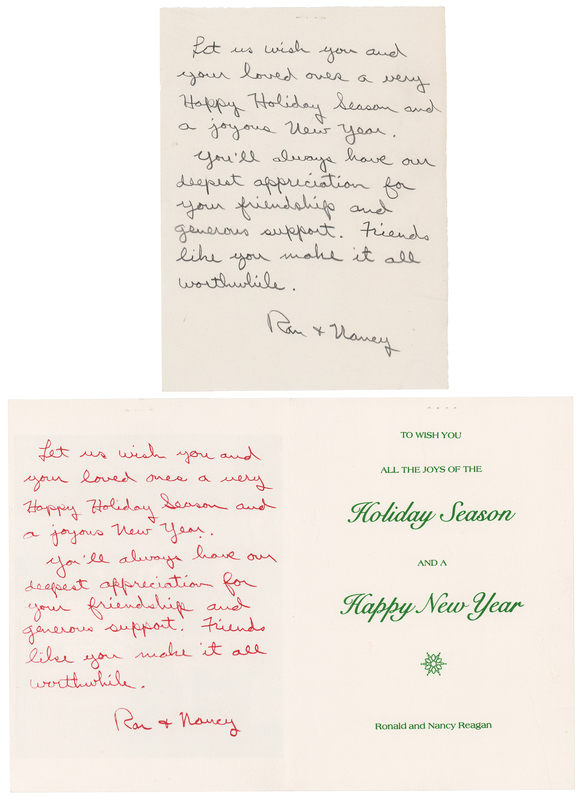 Let us wish you and
your loved ones a very
Happy Holiday Season and
a joyous New Year.
You'll always have our
deepest appreciation for
your friendship and
generous support. Friends
like you make it all
worthwhile.
Ron & Nancy
Let us wish you and
your loved ones a very
Happy Holiday Season and
a joyous New Year.
You'll always have our
deepest appreciation for
your friendship and
generous support. Friends
like you make it all
worthwhile.
Ron & Nancy
TO WISH YOU
ALL THE JOYS OF THE
Holiday Season
AND A
Happy New Year
Ronald and Nancy Reagan